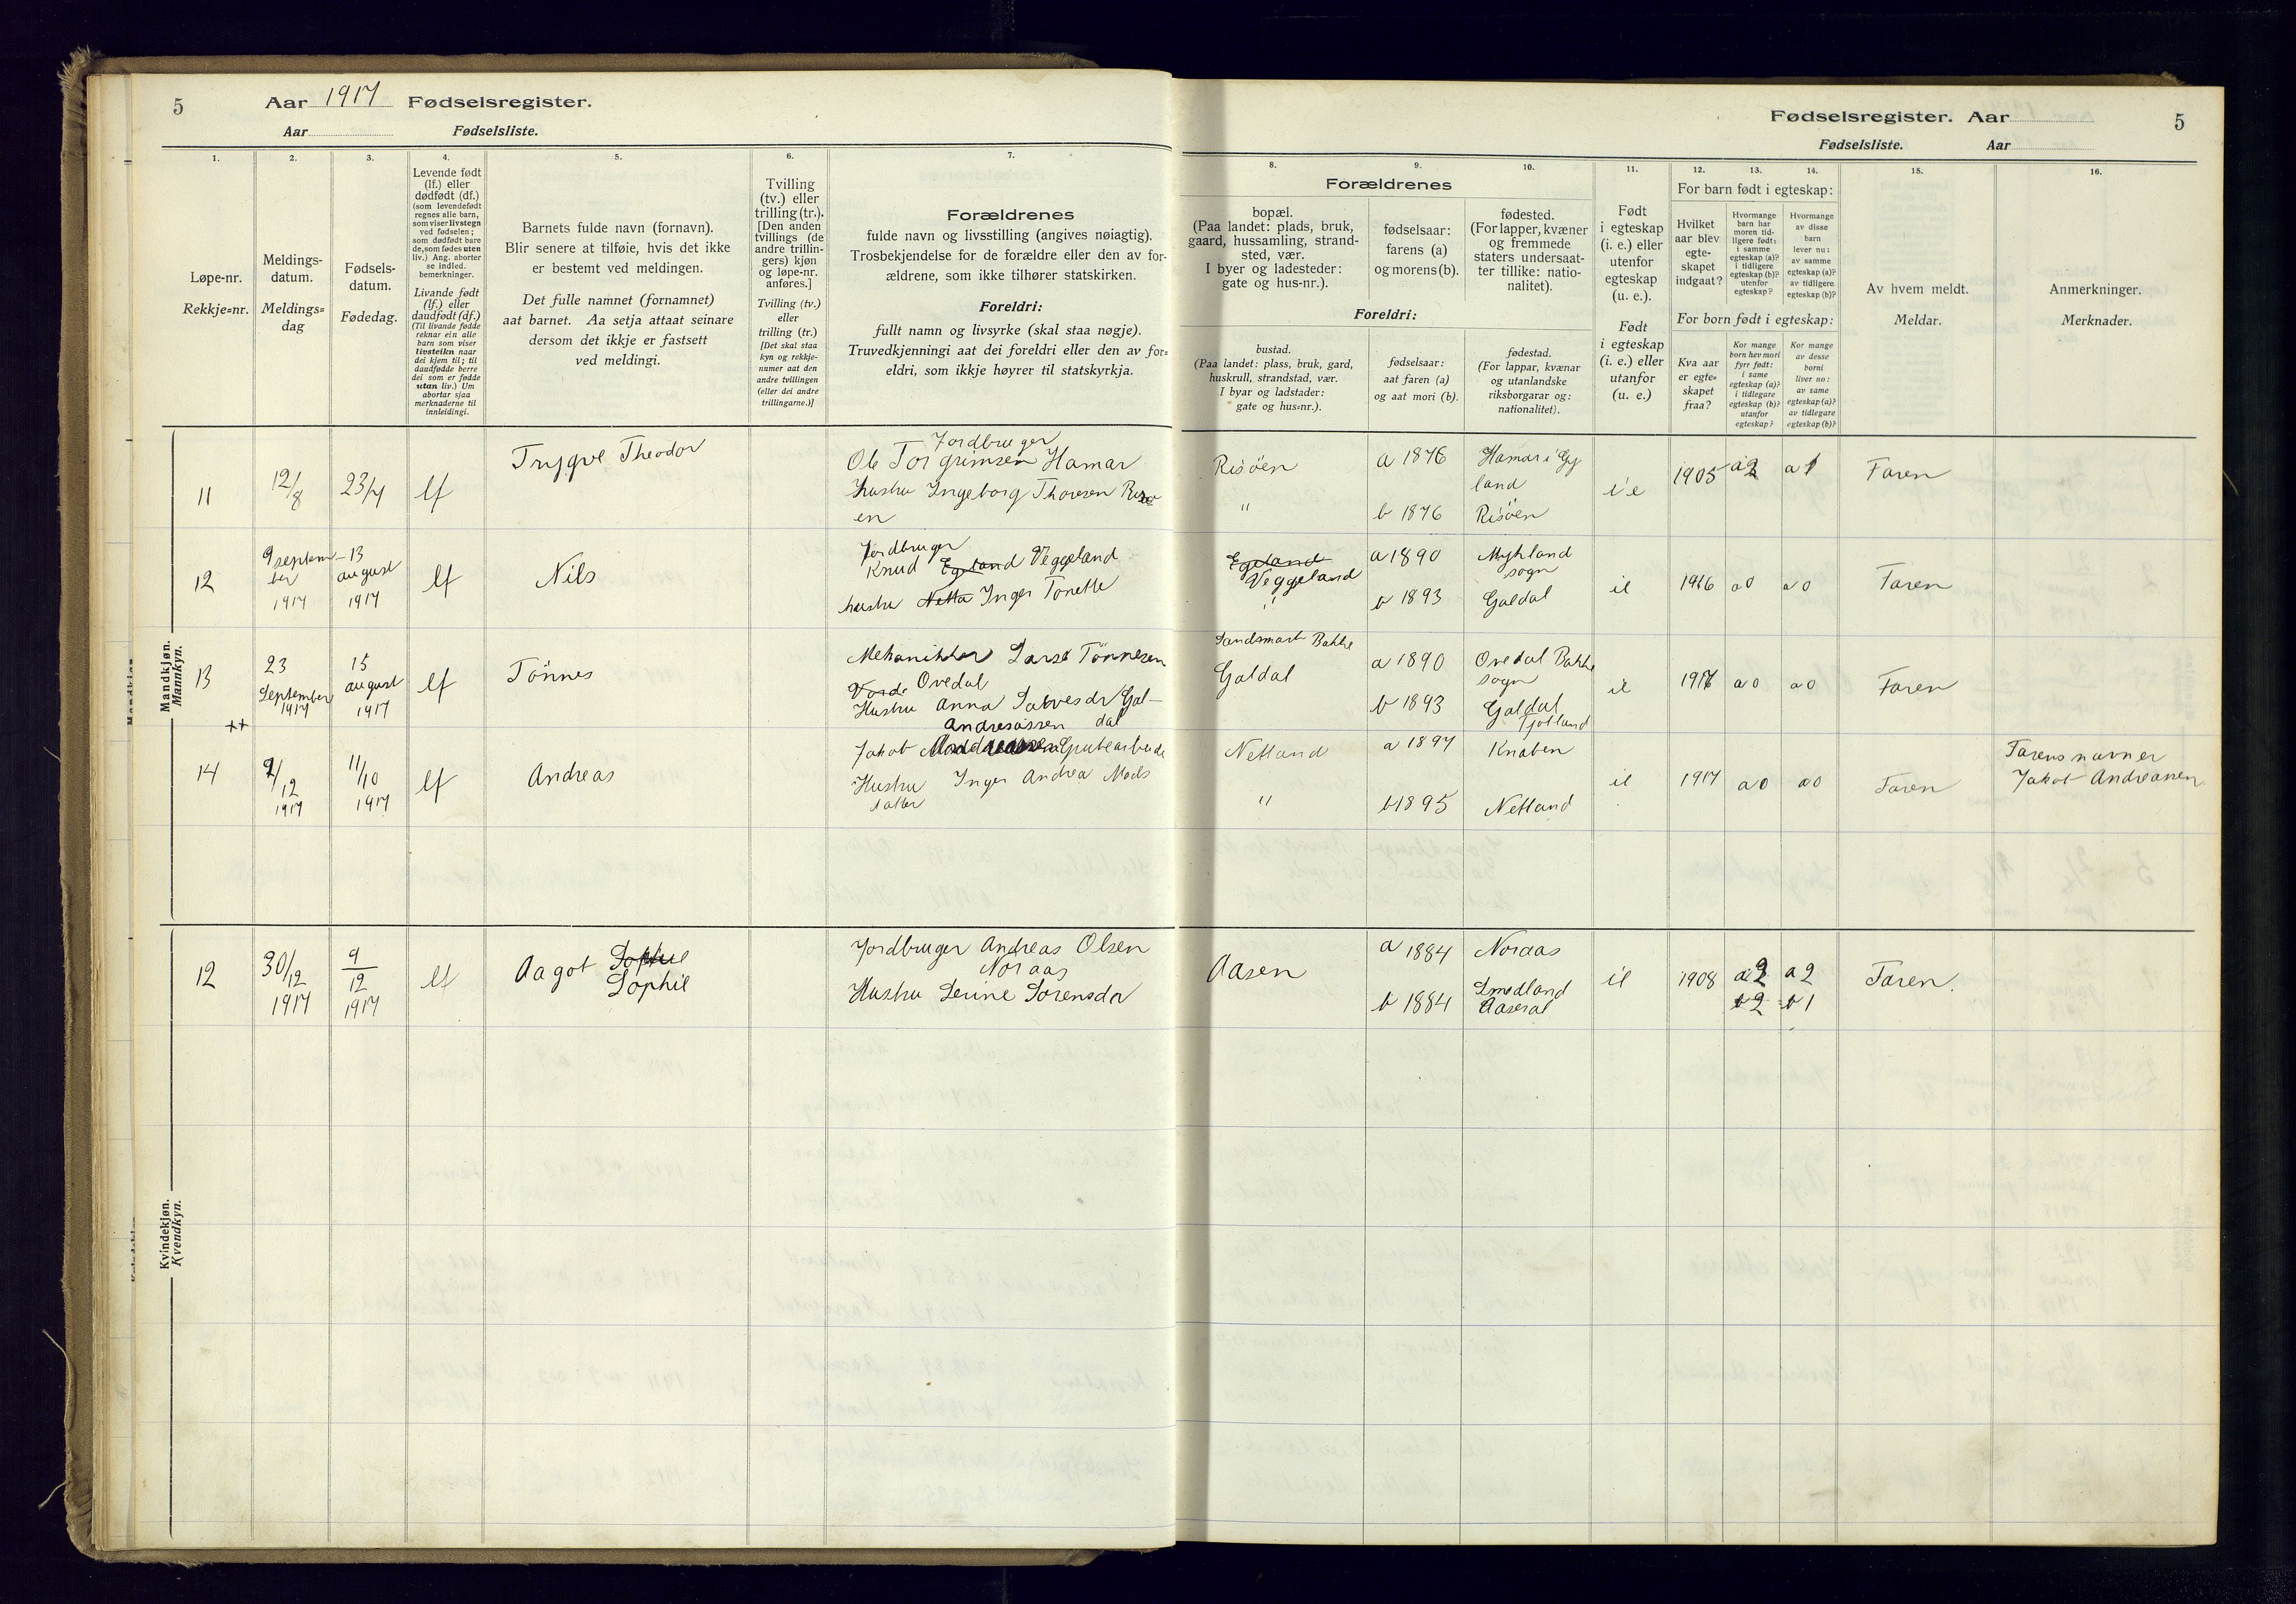 5
Aar 1917 Fødselsregister.
Aar Fødselsliste.
Fødselsregister. Aar
5
Fødselsliste. Aar
1.
2.
3.
4.
5.
6.
7.
8.
9.
10.
11.
12.
13.
14.
15.
16.
Løpe-nr.
Rekkje=nr.
Meldings-
datum.
Meldings=
dag
Fødsels-
datum.
Fødedag.
Levende født
(lf.) eller
dødfødt (df.)
(som levendefødt
regnes alle barn,
som viser livstegn
ved fødselen;
som dødfødt bare
de, som fødes uten
liv.) Ang. aborter
se indled.
bemerkninger.
Livande født
(lf.) eller
daudfødt (df.)
(Til livande fødde
reknar ein alle
barn som viser
livsteikn naar
dei kjem til; til
daudfødde berre
dei som er fødde
utan liv.) Um
abortar sjaa
merknaderne til
innleidingi.
Barnets fulde navn (fornavn).
Blir senere at tilføie, hvis det ikke
er bestemt ved meldingen.
Det fulle namnet (fornamnet)
aat barnet. Aa setja attaat seinare
dersom det ikkje er fastsett
ved meldingi.
Tvilling
(tv.) eller
trilling (tr.).
[Den anden
tvillings (de
andre trillin-
gers) kjøn
og løpe-nr.
anføres.]
Tvilling (tv.)
eller
trilling (tr.)
[Det skal staa
kyn og rekkje-
numer aat den
andre tvillingen
(eller dei andre
trillingarne.)]
Forældrenes
fulde navn og livsstilling (angives nøiagtig).
Trosbekjendelse for de forældre eller den av for-
ældrene, som ikke tilhører statskirken.
Foreldri:
fullt namn og livsyrke (skal staa nøgje).
Truvedkjenningi aat dei foreldri eller den av for=
eldri, som ikkje høyrer til statskyrkja.
Forældrenes
bopæl.
(Paa landet: plads, bruk,
gaard, hussamling, strand-
sted, vær.
I byer og ladesteder:
gate og hus-nr.).
fødselsaar:
farens (a)
og morens (b).
fødested.
(For lapper, kvæner
og fremmede
staters undersaat-
ter tillike: natio-
nalitet).
Foreldri:
bustad.
(Paa landet: plass, bruk, gard,
huskrull, strandstad, vær.
I byar og ladstader:
gate og hus=nr.).
fødselsaar:
aat faren (a)
og aat mori (b).
fødestad.
(For lappar, kvænar
og utanlandske
riksborgarar og:
nationalitet).
Født
i egteskap
(i. e.) eller
utenfor
egteskap
(u. e.).
Født
i egteskap
(i. e.) eller
utanfor
(u. e.)
For barn født i egteskap:
Hvilket
aar blev
egte-
skapet
indgaat?
Hvormange
barn har
moren tid-
ligere født:
i samme
egteskap (a)?
i tidligere
egteskap (b)?
utenfor
egteskap?
Hvormange
av disse
barn
lever nu:
av samme
egteskap (a)?
av tidligere
egteskap (b)?
For born født i egteskap:
Kva aar
er egte=
skapet
fraa?
Kor mange
born hev mori
fyrr født:
i same
egteskap (a)?
i tidlegare
egteskap (b)?
utanfor
egteskap?
Kor mange
av desse
borni
liver no:
av same
egteskap (a)?
av tidlegare
egteskap (b)?
Av hvem meldt.
Meldar.
Anmerkninger.
Merknader.
Mandkjøn.
Mannkyn.
11
12/8
23/7
lf
Trygve Theodor
Jordbruger
Ole Torgrimsen Hamar
hustru Ingeborg Thoresen
en
Risöen
"
a 1876
b 1876
Hamar i Gy
land
Risöen
i e
1905
a 2
a 1
Faren
12
9 septem-
ber
1917
13
august
1917
lf
Nils
Jordbruger
Knud Egeland Veggeland
hustru Netta Inger Tonette
Egeland
Veggeland
"
a 1890
b 1893
Myhland
sogn
Galdal
ie
1916
a 0
a 0
Faren
13
23
September
1917
15
august
1917
lf
Tönnes
Mekaniker Lars Tönnesen
Ovedal
Hustru Anna Salvesdr Gal-
dal
Landsmark Bakke
Galdal
a 1890
b 1893
Ovedal Bakke
sogn
Galdal
Fjotland
ie
1917
a 0
a 0
Faren
++
14
9/12
1917
11/10
1917
lf
Andreas
Andreassen
Jakob Grubearbeide
Hustru Inger Andrea Mads
datter
Netland
"
a 1897
b 1895
Knaben
Netland
ie
1917
a 0
a 0
Faren
Farens navn er
Jakob Andreassen
Kvindekjøn.
Kvendkyn.
12
30/12
1917
9
12
1917
lf
Aagot Sophie
Sophie
Jordbruger Andreas Olsen
Noraas
Hustru Serine Sörensda
Aasen
a 1884
b 1884
Noraas
Smedland
Aaseral
ie
1908
a 2
b 2
a 2
b 1
Faren.